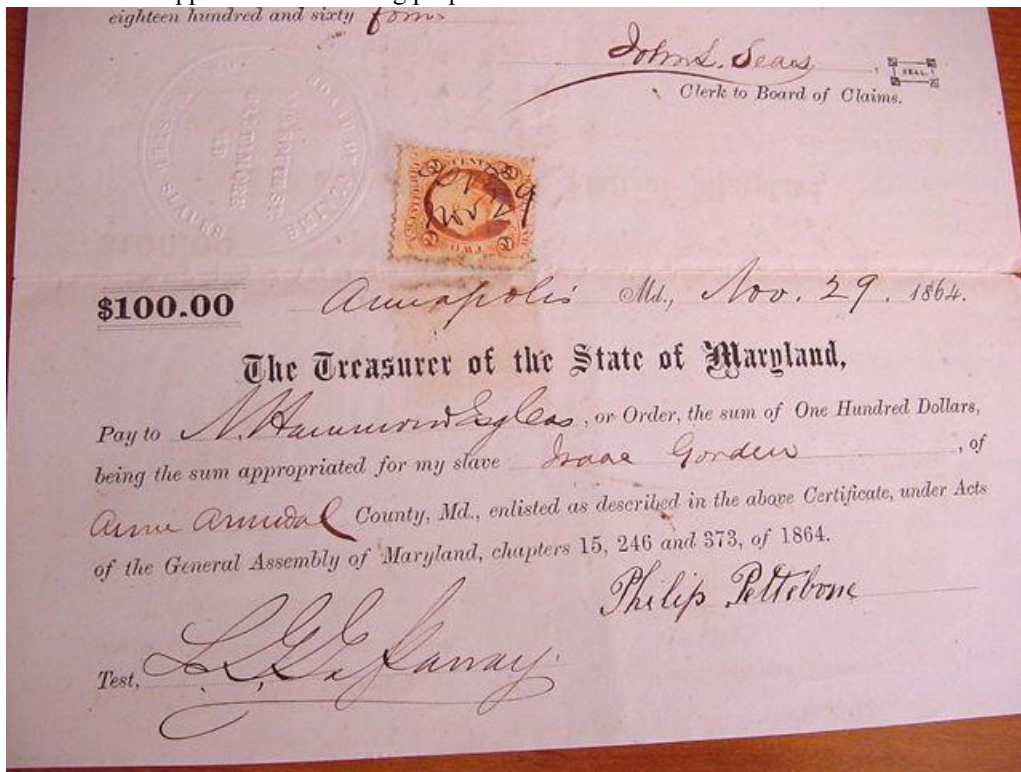 eighteen hundred and sixty four
John S. Sears
SEAL.
Clerk to Board of Claims.
BOARD OF CLAIMS
BALTIMORE
MD
SLAVES
$100.00 Annapolis Md., Nov. 29. 1864.
The Treasurer of the State of Maryland,
Pay to N. Hammond Esq Cas, or Order, the sum of One Hundred Dollars,
being the sum appropriated for my slave Isaac Gorden, of
Anne Arundal County, Md., enlisted as described in the above Certificate, under Acts
of the General Assembly of Maryland, chapters 15, 246 and 373, of 1864.
Philip Pettebone
Test,